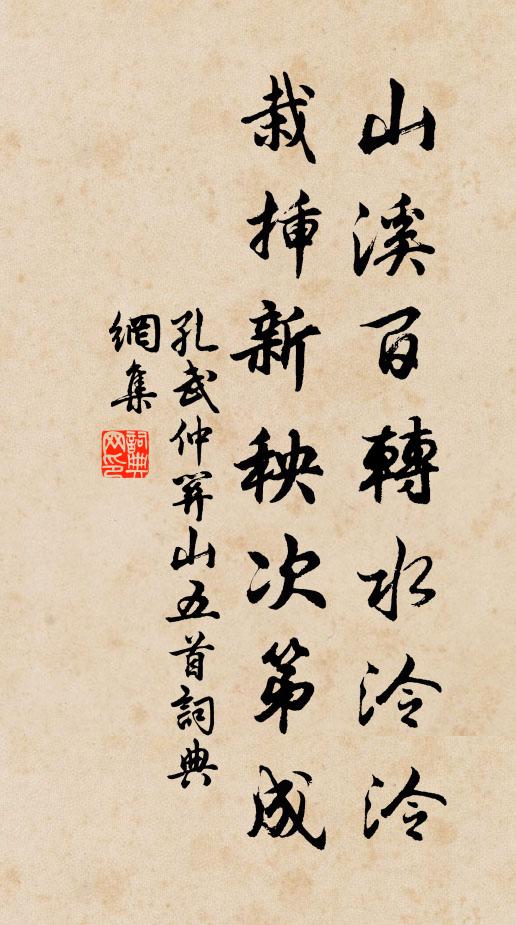 山溪百轉水泠泠
栽挿新秧次第成
孔武仲開山五首詞典
網集
詞典
网印